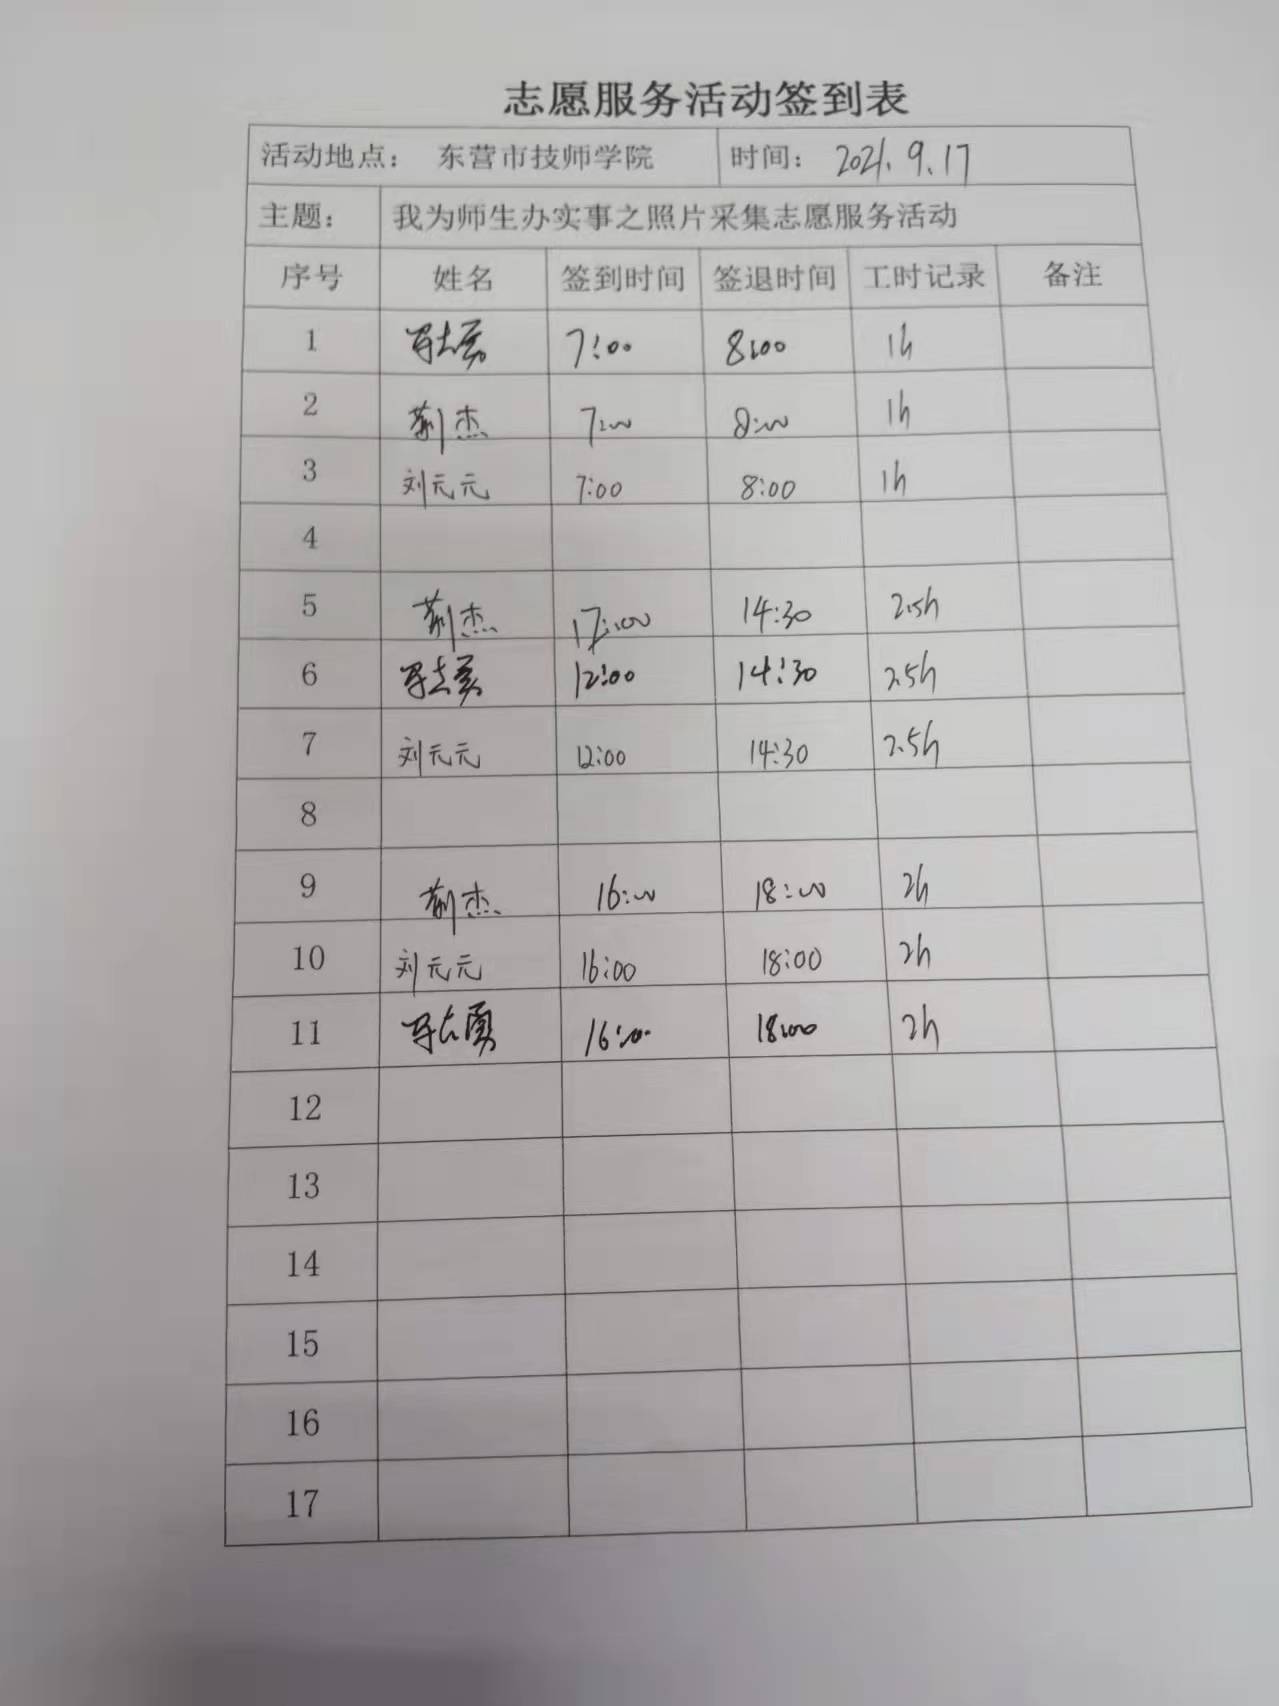 志愿服务活动签到表
活动地点： 东营市技师学院 时间： 2021.9.17
主题： 我为师生办实事之照片采集志愿服务活动
序号 姓名 签到时间 签退时间 工时记录 备注
1 7:00 8:00 1h
2 荆杰 7:00 8:00 1h
3 刘元元 7:00 8:00 1h
4
5 荆杰 12:00 14:30 2.5h
6 12:00 14:30 2.5h
7 刘元元 12:00 14:30 2.5h
8
9 荆杰 16:00 18:00 2h
10 刘元元 16:00 18:00 2h
11 16:00 18:00 2h
12
13
14
15
16
17